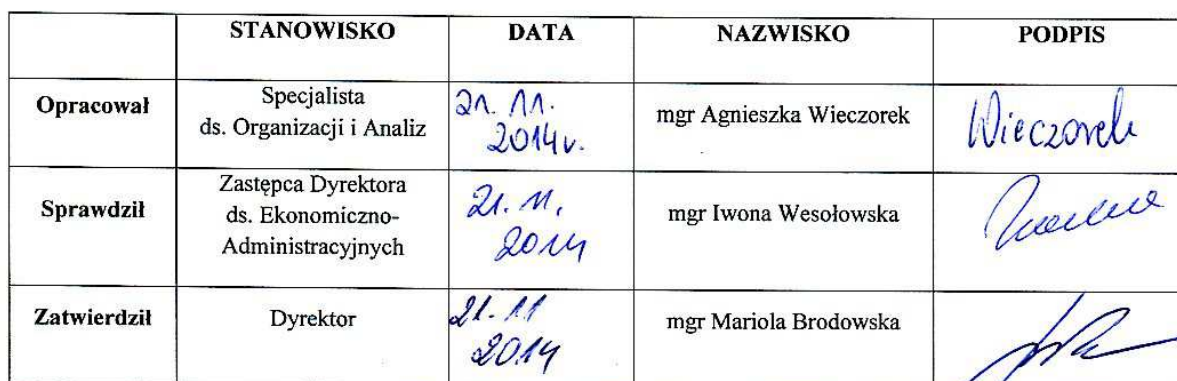 STANOWISKO DATA NAZWISKO PODPIS
Opracował Specjalista ds. Organizacji i Analiz 21. 11. 2014r. mgr Agnieszka Wieczorek Wieczorek
Sprawdził Zastępca Dyrektora ds. Ekonomiczno-Administracyjnych 21. 11. 2014 mgr Iwona Wesołowska
Zatwierdził Dyrektor 21. 11 2014 mgr Mariola Brodowska